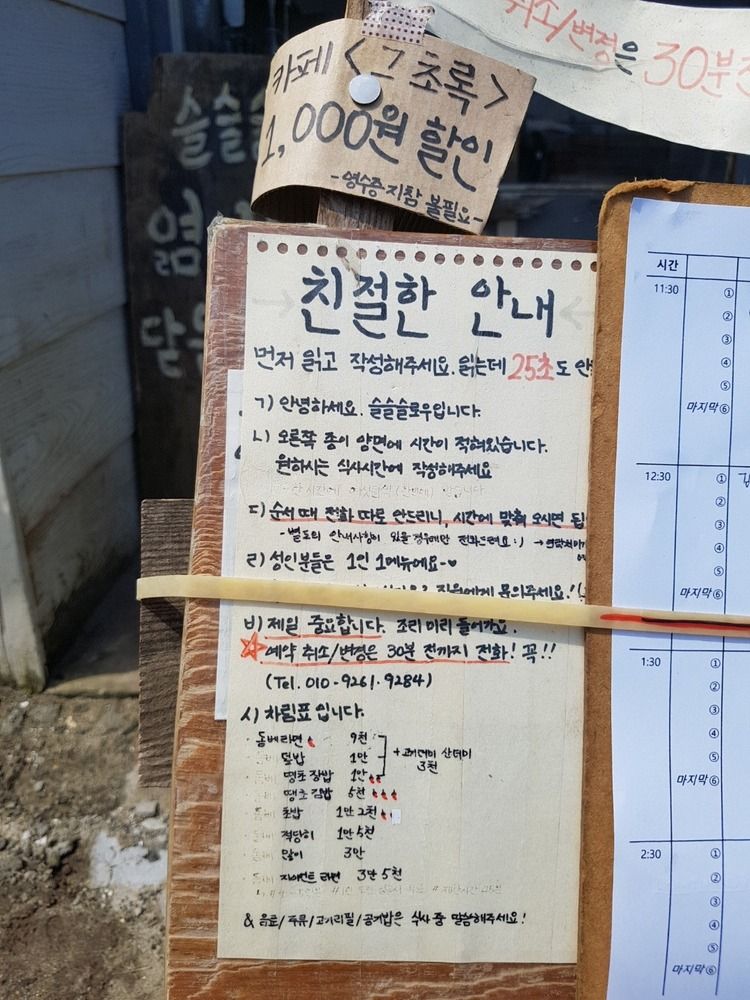 취소/변경은 30분
카페 <그 초록>
1,000원 할인
-영수증 지참 볼필요-
슬슬
친절한 안내
먼저 읽고 작성해주세요. 읽는데 25초도 안
ㄱ) 안녕하세요. 슬슬슬로우입니다.
ㄴ) 오른쪽 종이 양면에 시간이 적혀있습니다.
원하시는 식사시간에 작성해주세요
ㄷ) 순서 때 전화 따로 안드리니, 시간에 맞춰 오시면 됩
-별도의 안내사항이 있을 경우에만 전화드려요:)
ㄹ) 성인분들은 1인 1메뉴에요-♥
직원에게 문의주세요!
ㅂ) 제일 중요합니다. 조리 미리 들어가요.
☆예약 취소/변경은 30분 전까지 전화! 꼭!!
(Tel. 010-9261.9284)
ㅅ) 차림표 입니다.
돔베라면 9천
덮밥 1만
+고기데이 산데이
3천
땡초 장밥 1만
땡초 김밥 5천
초밥 1만 2천
적당히 1만 5천
많이 3만
자이언트 라면 3만 5천
& 음료/주류/고기리필/공기밥은 식사 중 말씀해주세요!
시간
11:30 ①
②
③
④
⑤
마지막⑥
12:30 ①
②
③
④
⑤
마지막⑥
1:30 ①
②
③
④
⑤
마지막⑥
2:30 ①
②
③
④
⑤
마지막⑥